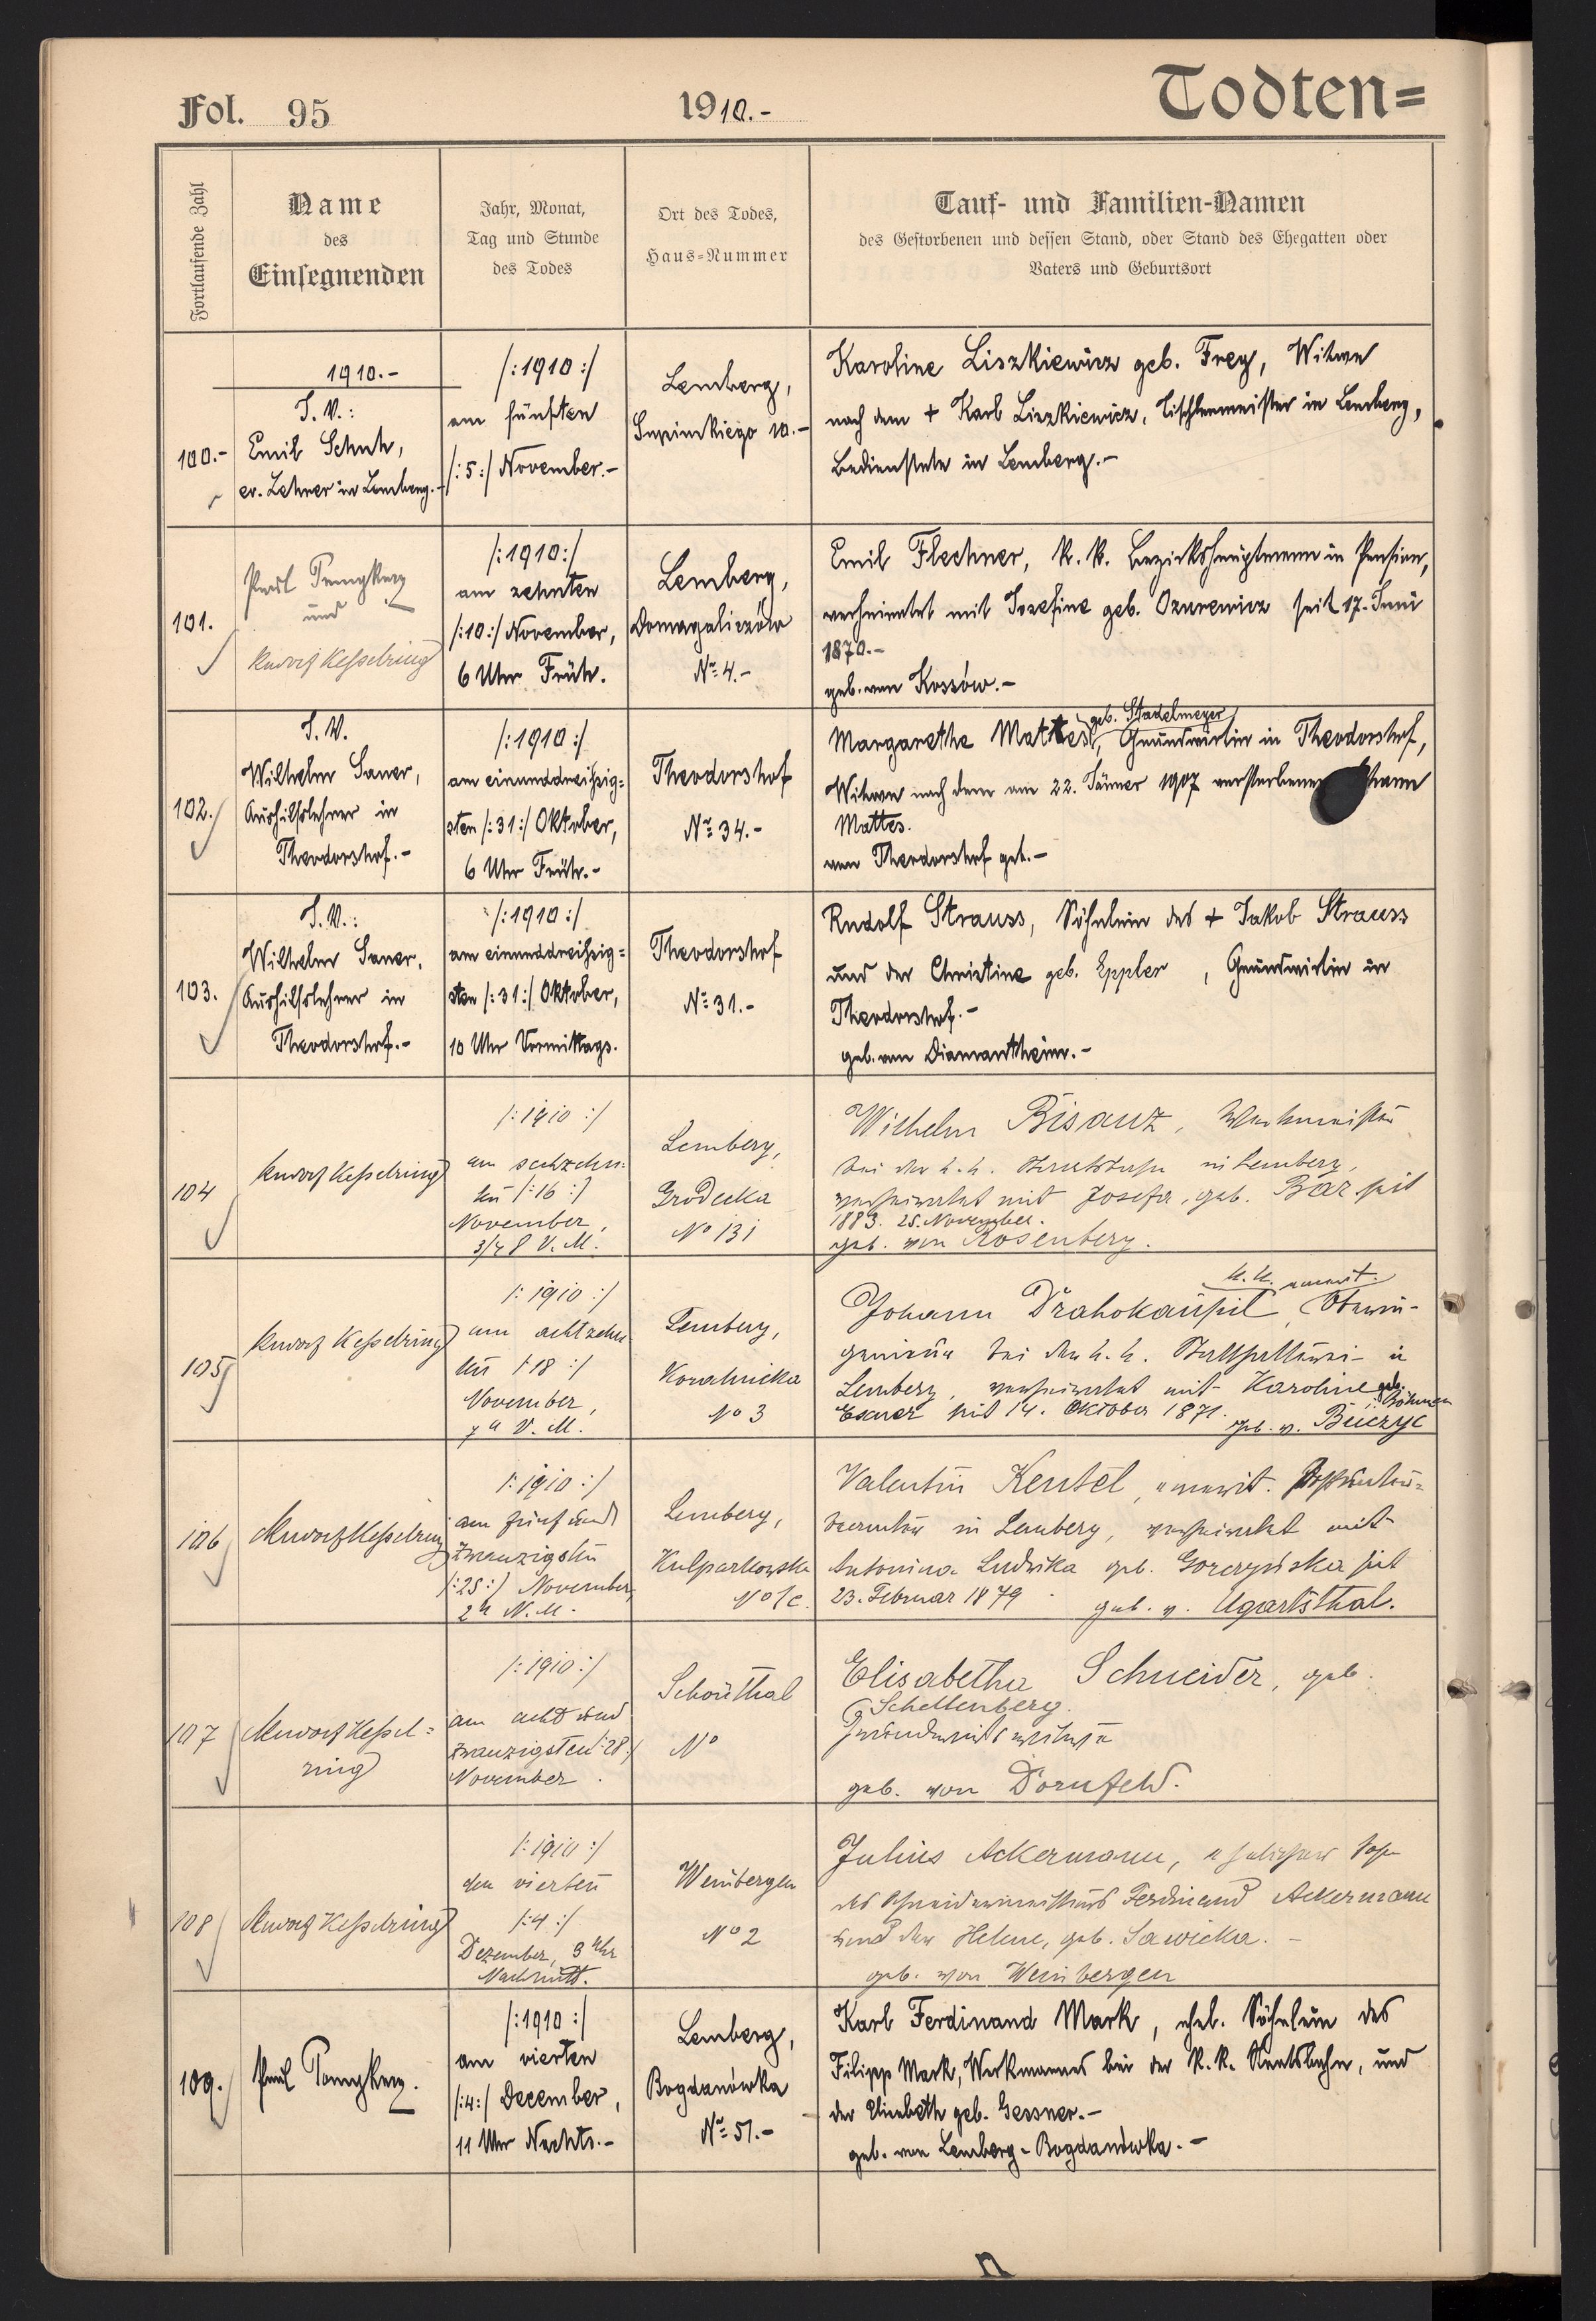 Fol. 95
1910.-
Todten=
Fortlaufende Zahl
Name
des
Einsegnenden
Jahr, Monat,
Tag und Stunde
des Todes
Ort des Todes,
Haus-Nummer
Tauf- und Familien-Namen
des Gestorbenen und dessen Stand, oder Stand des Ehegatten oder
Vaters und Geburtsort
100.-
1910.-
I. V.:
Emil Schuh,
ev. Lehrer in Lemberg.-
/:1910:/
am fünften
/:5:/ November.-
Lemberg,
10.-
Karoline Liszkiewicz geb. Frey, Witwe
nach dem + Karl Liszkiewicz, Tischlermeister in Lemberg,
Bedienstete in Lemberg.-
101.
und
Rudolf Kesselring
/:1910:/
am zehnten
/:10:/ November,
6 Uhr Früh.
Lemberg,
Domagaliczów
No 4.-
Emil Flechner, k. k. Bezirkshauptmann in Pension,
verheiratet mit Josefine geb. Ozurewicz seit 17. Juni
1870.-
geb. von Kossów.-
102.
I. V.
Wilhelm Saner,
Aushilfslehrer in
Theodorshof.-
/:1910:/
am einunddreißig=
sten /:31:/ Oktober,
6 Uhr Früh.-
Theodorshof
No 34.-
geb. Stadelmeyer
Margarethe Mattes, Grundwirtin in Theodorshof,
Witwe nach dem am 22. Jänner 1907 verstorbenen
Mattes.
von Theodorshof geb.-
103.
I. V.:
Wilhelm Saner,
Aushilfslehrer in
Theodorshof.-
/:1910:/
am einunddreißig=
sten /:31:/ Oktober,
10 Uhr Vormittags.
Theodorshof
No 31.-
Rudolf Strauss, Söhnlein des + Jakob Strauss
und der Christine geb. Eppler, Grundwirtin in
Theodorshof.-
geb. von Diamantheim.-
104
Rudolf Kesselring
/:1910:/
am sechzehn-
ten /:16:/
November,
3/4 8 V. M.
Lemberg,
Grodecka
No 131
Wilhelm Bisanz, Werkmeister
bei der k. k. Staatsbahn in Lemberg,
verheiratet mit Josefa, geb. Bär seit
1883. 25. November.
geb. von Rosenberg.
105
Rudolf Kesselring
/:1910:/
am achtzehn
ten /:18:/
November,
7h V. M.
Lemberg,
No 3
k. k. emerit.
Johann Drahokaupil, Oberin-
genieur bei der k. k. Statthalterei in
Lemberg, verheiratet mit Karoline geb.
Exner seit 14. Oktober 1871. geb. v.
i. Böhmen
106
Rudolf Kesselring
/:1910:/
am fünf und
zwanzigsten
/:25:/ November,
2h N. M.
Lemberg,
Kulparkowska
No 1c.
Valentin Kentel, emerit.
beamter in Lemberg, verheiratet mit
Antonina Ludwika geb. seit
23. Februar 1879 geb. v. Ugartsthal.
107
Rudolf Kessel=
ring
/:1910:/
am acht und
zwanzigsten /:28:/
November.
Schönthal
No
Elisabetha Schneider, geb.
Schellenberg.
geb. von Dornfeld.
108
Rudolf Kesselring
/:1910:/
den vierten
/:4:/
Dezember, 3 Uhr
Nachmitt.
Weinbergen
No 2
Julius Ackermann, ehelicher Sohn
des Schneidermeisters Ferdinand Ackermann
und der Helene, geb. Sawicka.-
geb. von Weinbergen
109.
/:1910:/
am vierten
/:4:/ December,
11 Uhr Nachts.-
Lemberg,
Bogdanówka
No 51.-
Karl Ferdinand Mark, ehel. Söhnlein des
Filipp Mark, Werkmannes bei der k. k. Staatsbahn, und
der Elisabeth geb. Gessner.-
geb. von Lemberg-Bogdanówka.-